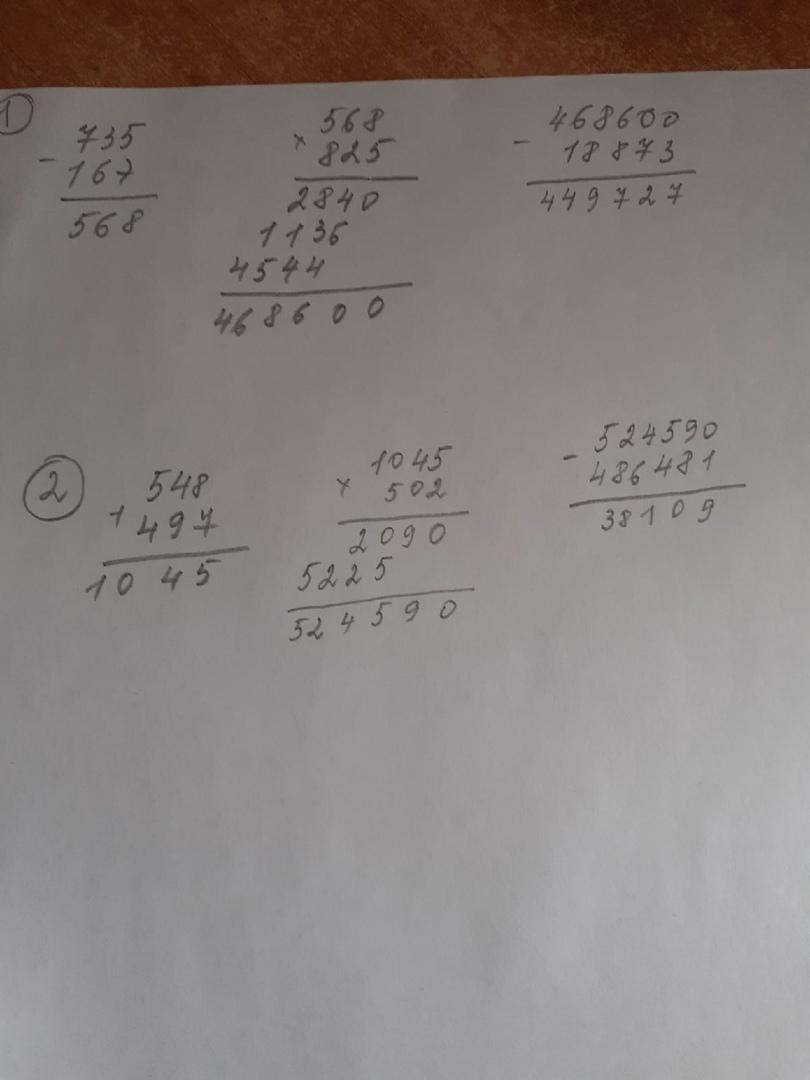 1
735
- 167
568
568
× 825
2840
1136
4544
468600
468600
- 18873
449727
2
548
+ 497
1045
1045
× 502
2090
5225
524590
524590
- 486481
38109